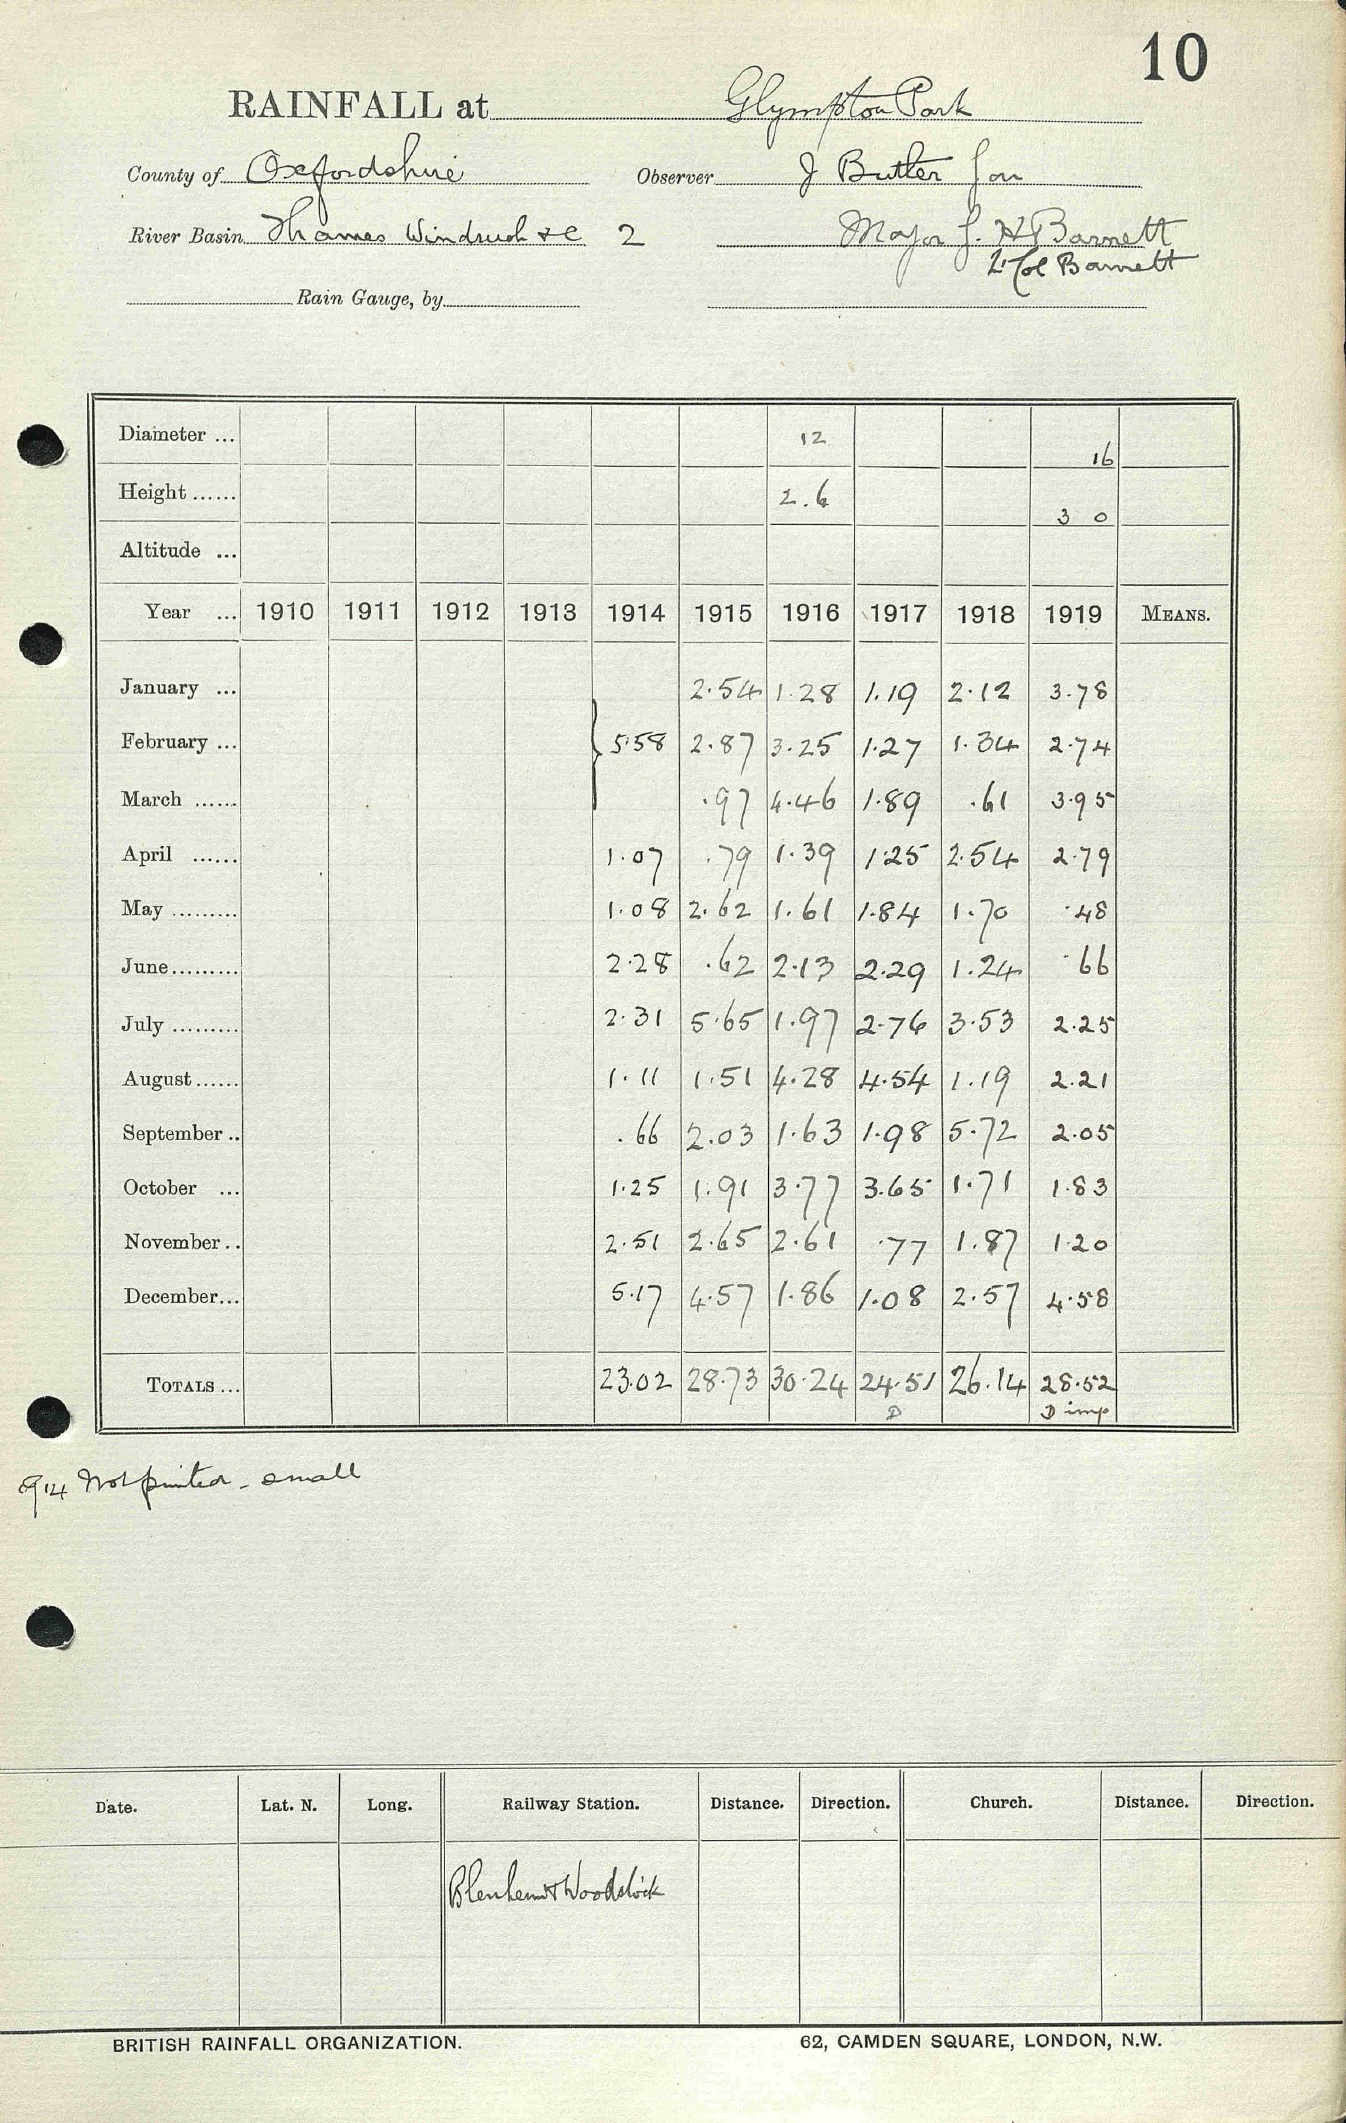 10
RAINFALL at Glympton Park
County of Oxfordshire Observer J Butler for
River Basin Thames Windrush &c 2 Major G. H Barnett
Lt Col Barnett
Rain Gauge, by
Diameter ... 12 16
Height ...... 2.6 3 0
Altitude ...
Year ... 1910 1911 1912 1913 1914 1915 1916 1917 1918 1919 MEANS.
January ... 2.54 1.28 1.19 2.12 3.78
February ... 5.58 2.87 3.25 1.27 1.34 2.74
March ...... .97 4.46 1.89 .61 3.95
April ...... 1.07 .79 1.39 1.25 2.54 2.79
May ......... 1.08 2.62 1.61 1.84 1.70 .48
June......... 2.28 .62 2.13 2.29 1.24 .66
July ......... 2.31 5.65 1.97 2.76 3.53 2.25
August...... 1.11 1.51 4.28 4.54 1.19 2.21
September .. .66 2.03 1.63 1.98 5.72 2.05
October ... 1.25 1.91 3.77 3.65 1.71 1.83
November .. 2.51 2.65 2.61 .77 1.87 1.20
December... 5.17 4.57 1.86 1.08 2.57 4.58
TOTALS ... 23.02 28.73 30.24 24.51 26.14 28.52
D D imp
1914 Not printed - small
Date. Lat. N. Long. Railway Station. Distance. Direction. Church. Distance. Direction.
Blenheim & Woodstock
BRITISH RAINFALL ORGANIZATION. 62, CAMDEN SQUARE, LONDON, N.W.